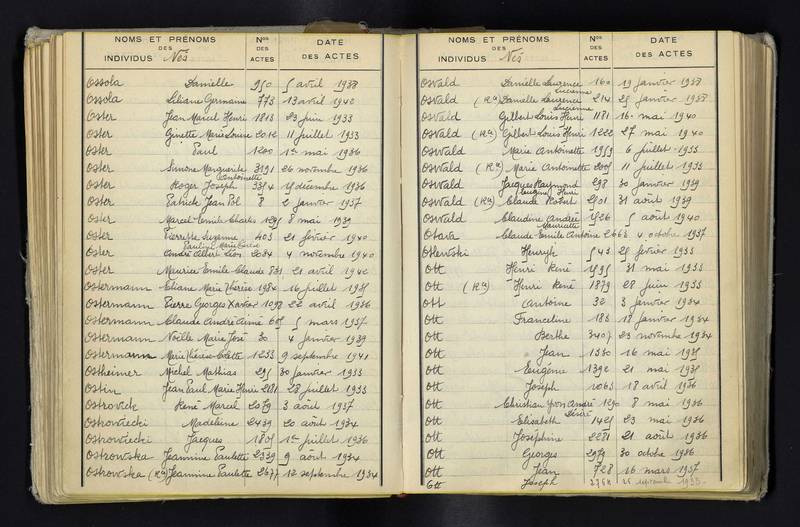 NOMS ET PRÉNOMS DES INDIVIDUS Nés
Nos DES ACTES
DATE DES ACTES
Ossola Danielle 950 5 avril 1938
Ossola Liliane Germaine 773 13 avril 1940
Oster Jean Marcel Henri 1813 23 juin 1933
Oster Ginette Marie Louise 2012 11 juillet 1933
Oster Paul 1200 1er mai 1936
Oster Simone Marguerite 3191 26 novembre 1936
Antoinette
Oster Roger Joseph 3354 15 décembre 1936
Oster Patrick Jean Pol 8 2 janvier 1937
Oster Marcel Emile Charles 1295 8 mai 1939
Oster Pierrette Suzanne 403 21 février 1940
Pauline Marie
Oster André Albert Léon 2034 4 novembre 1940
Oster Maurice Emile Claude 831 21 avril 1942
Ostermann Eliane Marie Thérèse 1984 16 juillet 1935
Ostermann Pierre Georges Xavier 1098 22 avril 1936
Ostermann Claude André Aimé 605 5 mars 1937
Ostermann Noëlle Marie José 30 4 janvier 1939
Ostermann Marie Thérèse Colette 1233 9 septembre 1941
Ostheimer Michel Mathias 295 30 janvier 1933
Ostin Jean Paul Marie Henri 2131 28 juillet 1933
Ostrovick René Marcel 2079 3 août 1937
Ostrowiecki Madeleine 2439 20 août 1934
Ostrowiecki Jacques 1805 1er juillet 1936
Ostrowska Jeannine Paulette 2339 9 août 1934
Ostrowska (Rn) Jeannine Paulette 2677 12 septembre 1934
NOMS ET PRÉNOMS DES INDIVIDUS Nés
Nos DES ACTES
DATE DES ACTES
Oswald Danielle Laurence 160 19 janvier 1938
Lucienne
Oswald (Rn) Danielle Laurence 214 25 janvier 1938
Lucienne
Oswald Gilbert Louis Henri 1181 16 mai 1940
Oswald (Rn) Gilbert Louis Henri 1222 27 mai 1940
Oswald Marie Antoinette 1959 6 juillet 1933
Oswald (Rn) Marie Antoinette 2005 11 juillet 1933
Oswald Jacques Raymond 298 30 janvier 1939
Eugène Henri
Oswald (Rn) Claude Robert 2501 31 août 1939
Oswald Claudine Andrée 1526 5 août 1940
Mauricette
Claude Emile Antoine 2668 4 octobre 1937
Henryk 543 25 février 1933
Ott Henri René 1595 31 mai 1933
Ott (Rn) Henri René 1879 28 juin 1933
Ott Antoine 32 3 janvier 1934
Ott Franceline 183 18 janvier 1934
Ott Berthe 3407 23 novembre 1934
Ott Jean 1330 16 mai 1935
Ott Eugénie 1392 21 mai 1935
Ott Joseph 1063 18 avril 1936
Ott Christian Yvon André 1290 8 mai 1936
Désiré
Ott Elisabeth 1425 23 mai 1936
Ott Joséphine 2281 21 août 1936
Ott Georges 2979 30 octobre 1936
Ott Jean 728 16 mars 1937
Ott Joseph